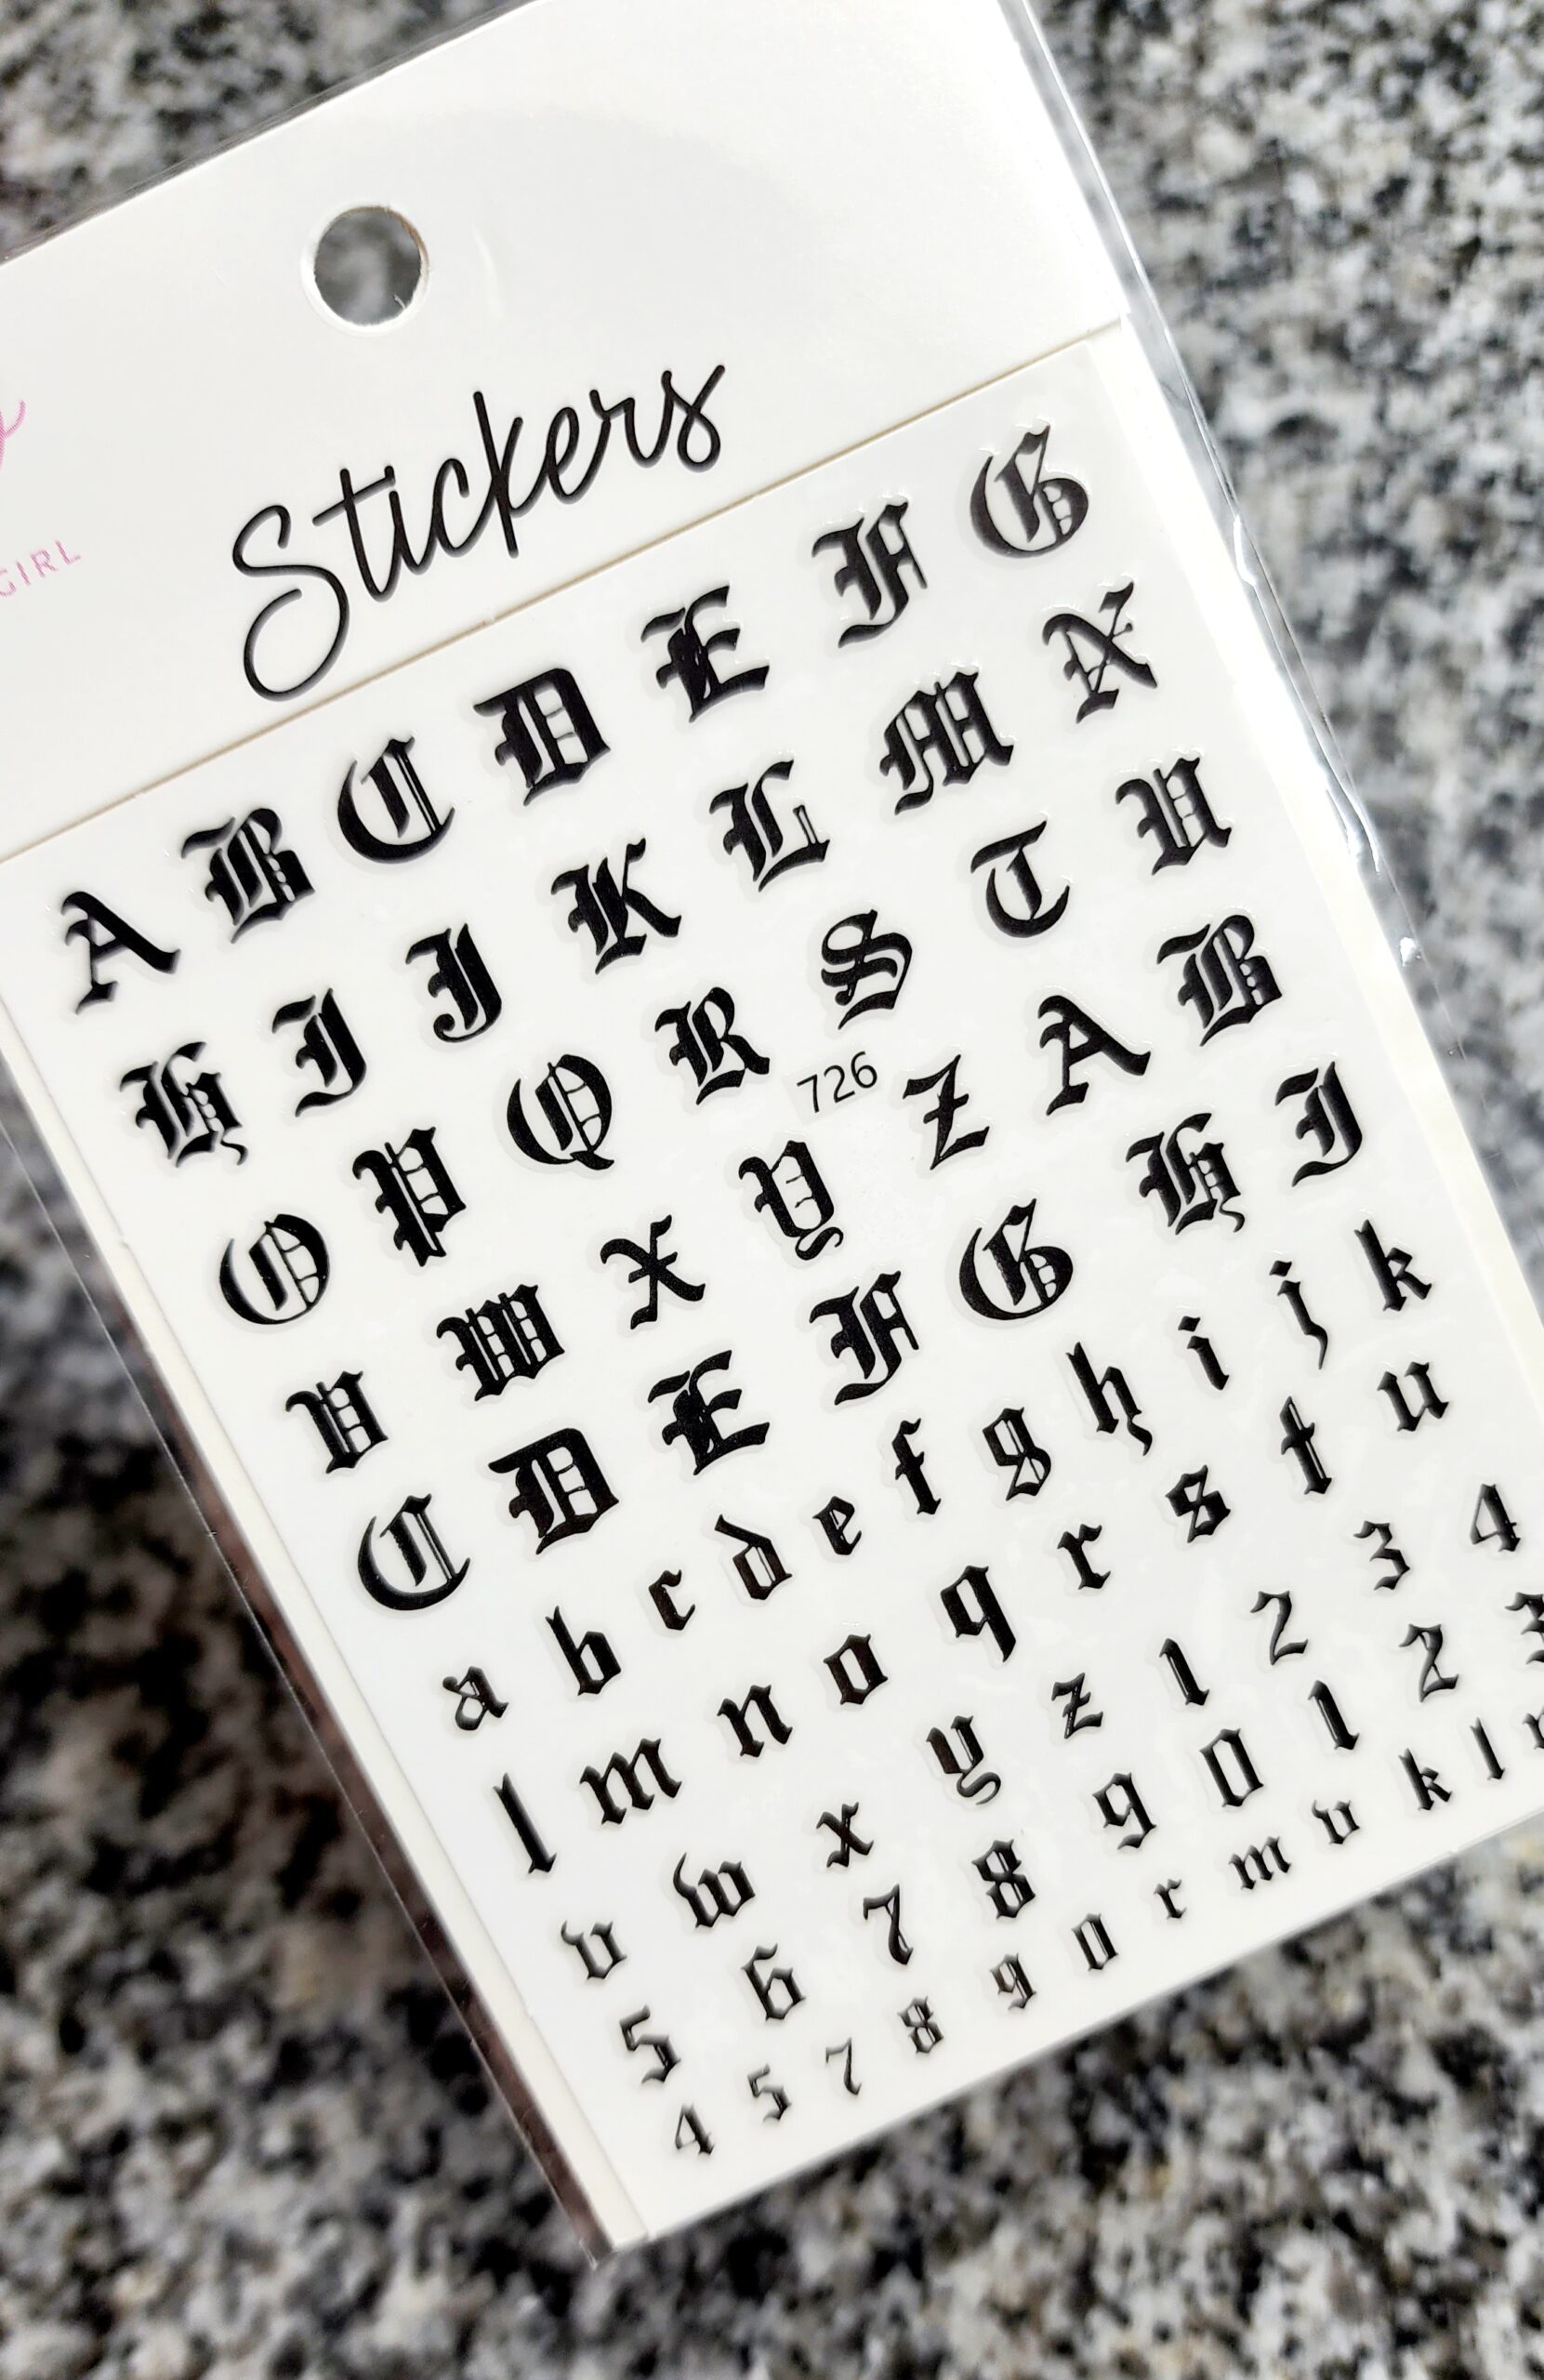 GIRL
Stickers
A B C D E F G
H I J K L M N
O P Q R S T U
726
V W X Y Z A B
C D E F G H I
a b c d e f g h i j k
l m n o q r s t u
v w x y z 1 2 3 4
5 6 7 8 9 0 1 2 3
4 5 7 8 9 0 r m v k l